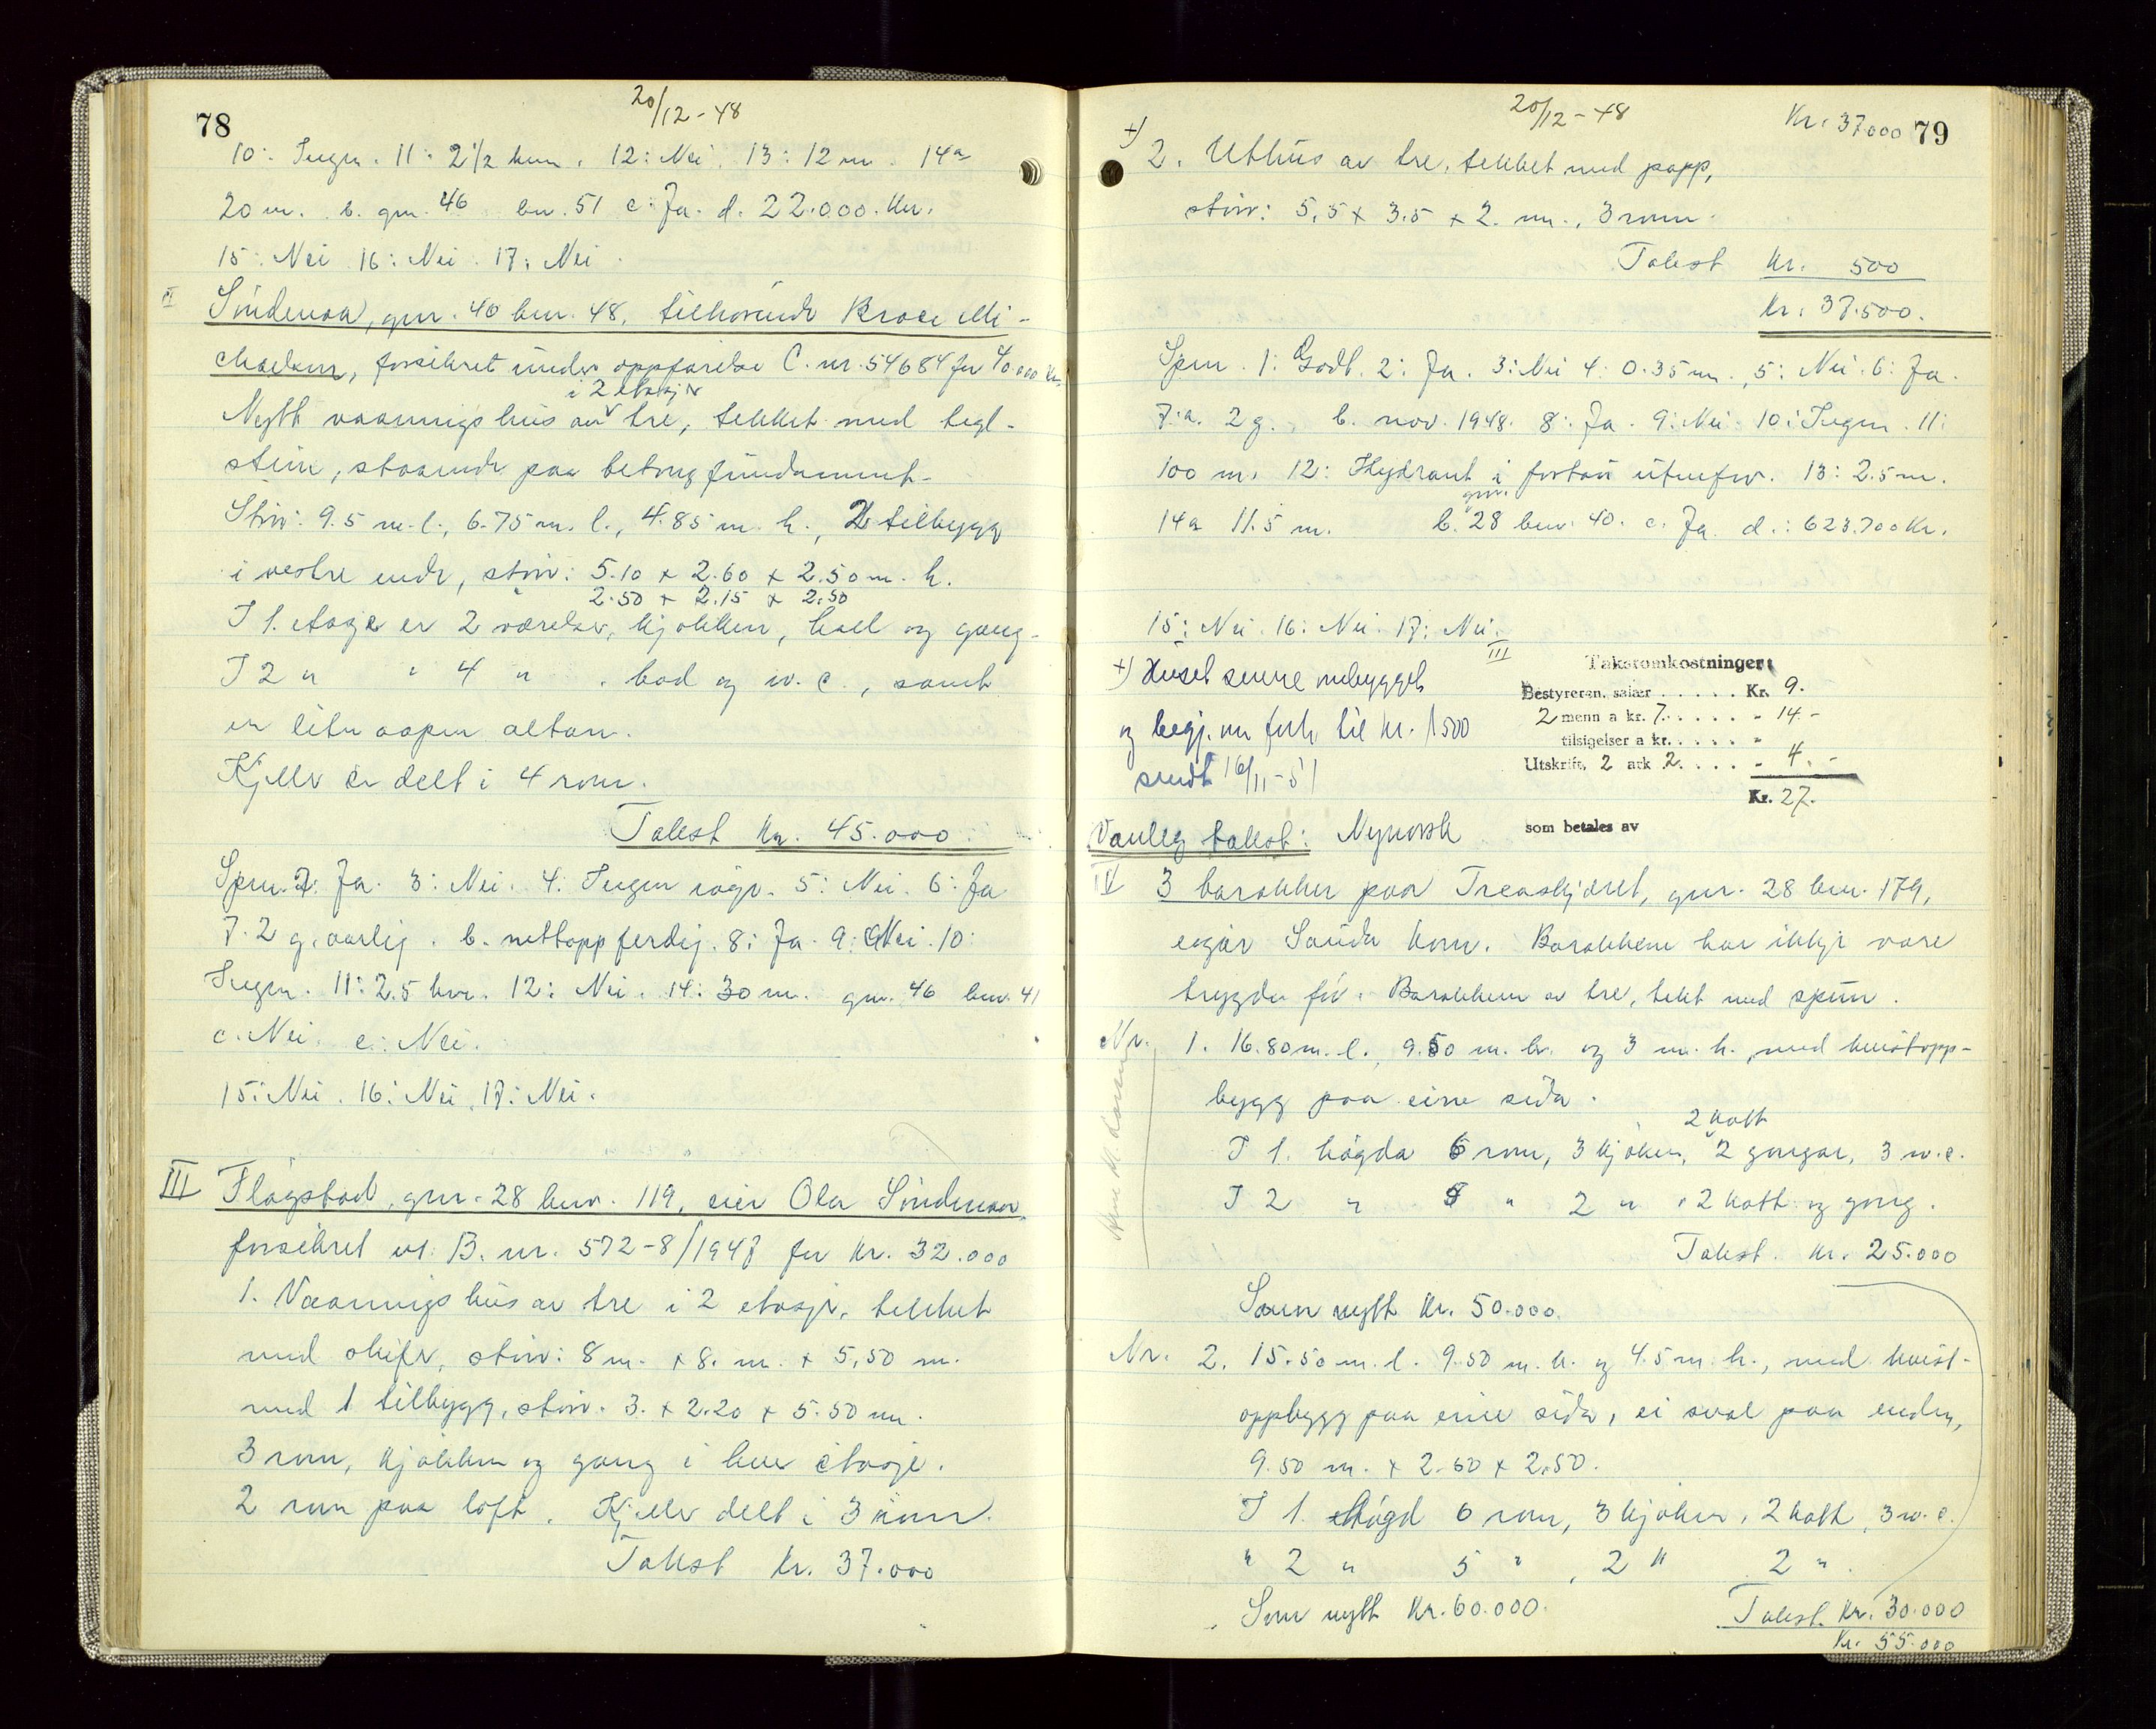 78
20/12-48
10: Ingen. 11: 2½ km. 12: Nei. 13: 12 m. 14a
20 m. b. gnr. 46 bnr. 51 c: Ja. d. 22.000. Kr.
15: Nei 16: Nei. 17: Nei.
II Søndenaa, gnr. 40 bnr. 48, tilhørende
forsikret under oppførelse C. nr. 54684 for 40.000 kr.
i 2 etasjer
Nytt vaaningshus av tre, tekket med tegl-
stein, staaende paa betong fundament.
Stør: 9.5 m. l., 6.75 m. b., 4.85 m. h., 2 tilbygg
i vestre ende, stør: 5.10 x 2.60 x 2.50 m. h.
2.50 x 2.15 x 2.50
I 1. etage er 2 værelser, kjøkken, hall og gang.
I 2 " " 4 " , bad og w. c., samt
en liten aapen altan.
Kjeller er delt i 4 rom.
Takst Kr. 45.000.
Spm. 2: Ja. 3: Nei. 4: Ingen 5: Nei. 6: Ja
7. 2 g. aarlig. b. nettopp ferdig. 8: Ja. 9: Nei. 10:
Ingen. 11: 2.5 km. 12: Nei. 14: 30 m. gnr. 46 bnr. 41
c. Nei. e: Nei.
15: Nei. 16: Nei. 17: Nei.
III Fløgstad, gnr. 28 bnr. 119, eier Ola Søndenaa,
forsikret ved B. nr. 572-8/1947 for Kr. 32.000
1. Vaaningshus av tre i 2 etasjer, tekket
med skifer, stør: 8 m. x 8. m. x 5,50 m.
med 1 tilbygg, stør. 3. x 2.20 x 5.50 m.
3 rom, kjøkken og gang i hver etasje.
2 rom paa loft. Kjeller delt i 3 rom.
Takst Kr. 37.000
20/12-48
Kr. 37.000 79
+) 2. Uthus av tre, tekket med papp,
stør: 5,5 x 3.5 x 2. m., 3 rom.
Takst Kr. 500
Kr. 37.500.
Spm. 1: Godt. 2: Ja. 3: Nei 4: 0.35 m., 5: Nei. 6: Ja.
7: a. 2 g., b. nov. 1948. 8: Ja. 9: Nei. 10: Ingen. 11:
100 m. 12: Hydrant i fortau utenfor. 13: 2.5 m.
gnr.
14a 11.5 m. b. 28 bnr. 40. c. Ja d.: 623.700 Kr.
15: Nei. 16: Nei. 17: Nei.
+) Huset senere ombygget
og begj. om forh. til kr. 1500
sendt 16/11-51
III
Takstomkostninger:
Bestyreren, salær . . . . . Kr. 9.
2 menn a kr. 7. . . . . . " 14.-
tilsigelser a kr. . . . . "
Utskrift, 2 ark 2. . . . . " 4.-
Kr. 27.
som betales av
Vanleg takst: Nynorsk
IV 3 barakker paa Treaskjæret, gnr. 28 bnr. 179,
eigar Sauda kom. Barakkene har ikkje vore
trygda før. Barakkene av tre, tekt med spon.
Nr. 1. 16.80 m. l., 9.50 m. br. og 3 m. h., med kvistopp-
bygg paa eine sida.
2 kott
I 1. høgda 6 rom, 3 kjøken, 2 gangar, 3 w.c.
I 2 " 5 " 2 " , 2 kott og gong.
Takst. Kr. 25.000
Som nytt Kr. 50.000.
Nr. 2. 15.50 m. l. 9.50 m. br. og 4.5 m. h., med kvist-
oppbygg paa eine sida, ei sval paa enden,
9.50 m. x 2.60 x 2.50.
I 1. høgd 6 rom, 3 kjøken, 2 kott, 3 w.c.
" 2 " 5 " , 2 " 2 ".
Som nytt Kr. 60.000. Takst. Kr. 30.000
Kr. 55.000